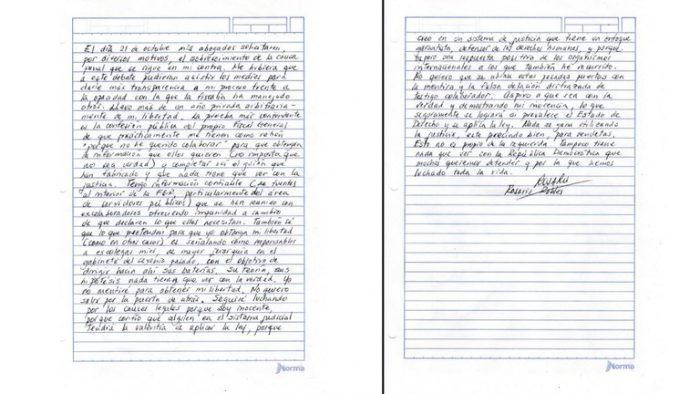 El día 21 de octubre mis abogados solicitaron,
por diversos motivos, el sobreseimiento de la causa
penal que se sigue en mi contra. Me hubiera que
a este debate pudieran asistir los medios para
darle más transparencia a mi proceso frente a
la opacidad con la que la fiscalía ha manejado
otros. Llevo más de un año privada arbitraria-
mente de mi libertad. La prueba más contundente
es la confesión pública del propio Fiscal General
de que prácticamente me tienen como rehén
"porque no he querido colaborar" para que obtengan
la información que ellos quieren (no importa que
no sea verdad) y completar así el guión que
han fabricado y que nada tiene que ver con la
justicia. Tengo información confiable (de fuentes
al interior de la FGR, particularmente del área
de servidores públicos) que se han reunido con
excolaboradores ofreciendo impunidad a cambio
de que declaren lo que ellos necesitan. También sé
que lo que pretenden para que yo obtenga mi libertad
(como en otros casos) es señalando como responsables
a excolegas míos, de mayor jerarquía en el
gabinete del sexenio pasado, con el objetivo de
dirigir hacia ahí sus baterías. Su teoría, sus
hipótesis nada tienen que ver con la verdad. Yo
no mentiré para obtener mi libertad. No quiero
salir por la puerta de atrás. Seguiré luchando
por los cauces legales porque soy inocente,
porque confío que alguien en el sistema judicial
tendrá la valentía de aplicar la ley, porque
Norma
creo en un sistema de justicia que tiene un enfoque
garantista, defensor de los derechos humanos, y porque
espero una respuesta positiva de los organismos
internacionales a los que también he recurrido.
No quiero que se abran estas pesadas puertas con
la mentira y la falsa delación disfrazada de
testigo colaborador. Espero que sea con la
verdad y demostrando mi inocencia, lo que
seguramente se logrará si prevalece el Estado de
Derecho y se aplica la ley. Nada se gana utilizando
la justicia, este preciado bien, para vendettas.
Esto no es propio de la izquierda. Tampoco tiene
nada que ver con la República Democrática que
muchos queremos defender y por la que hemos
luchado toda la vida.
Rosario Robles
Norma